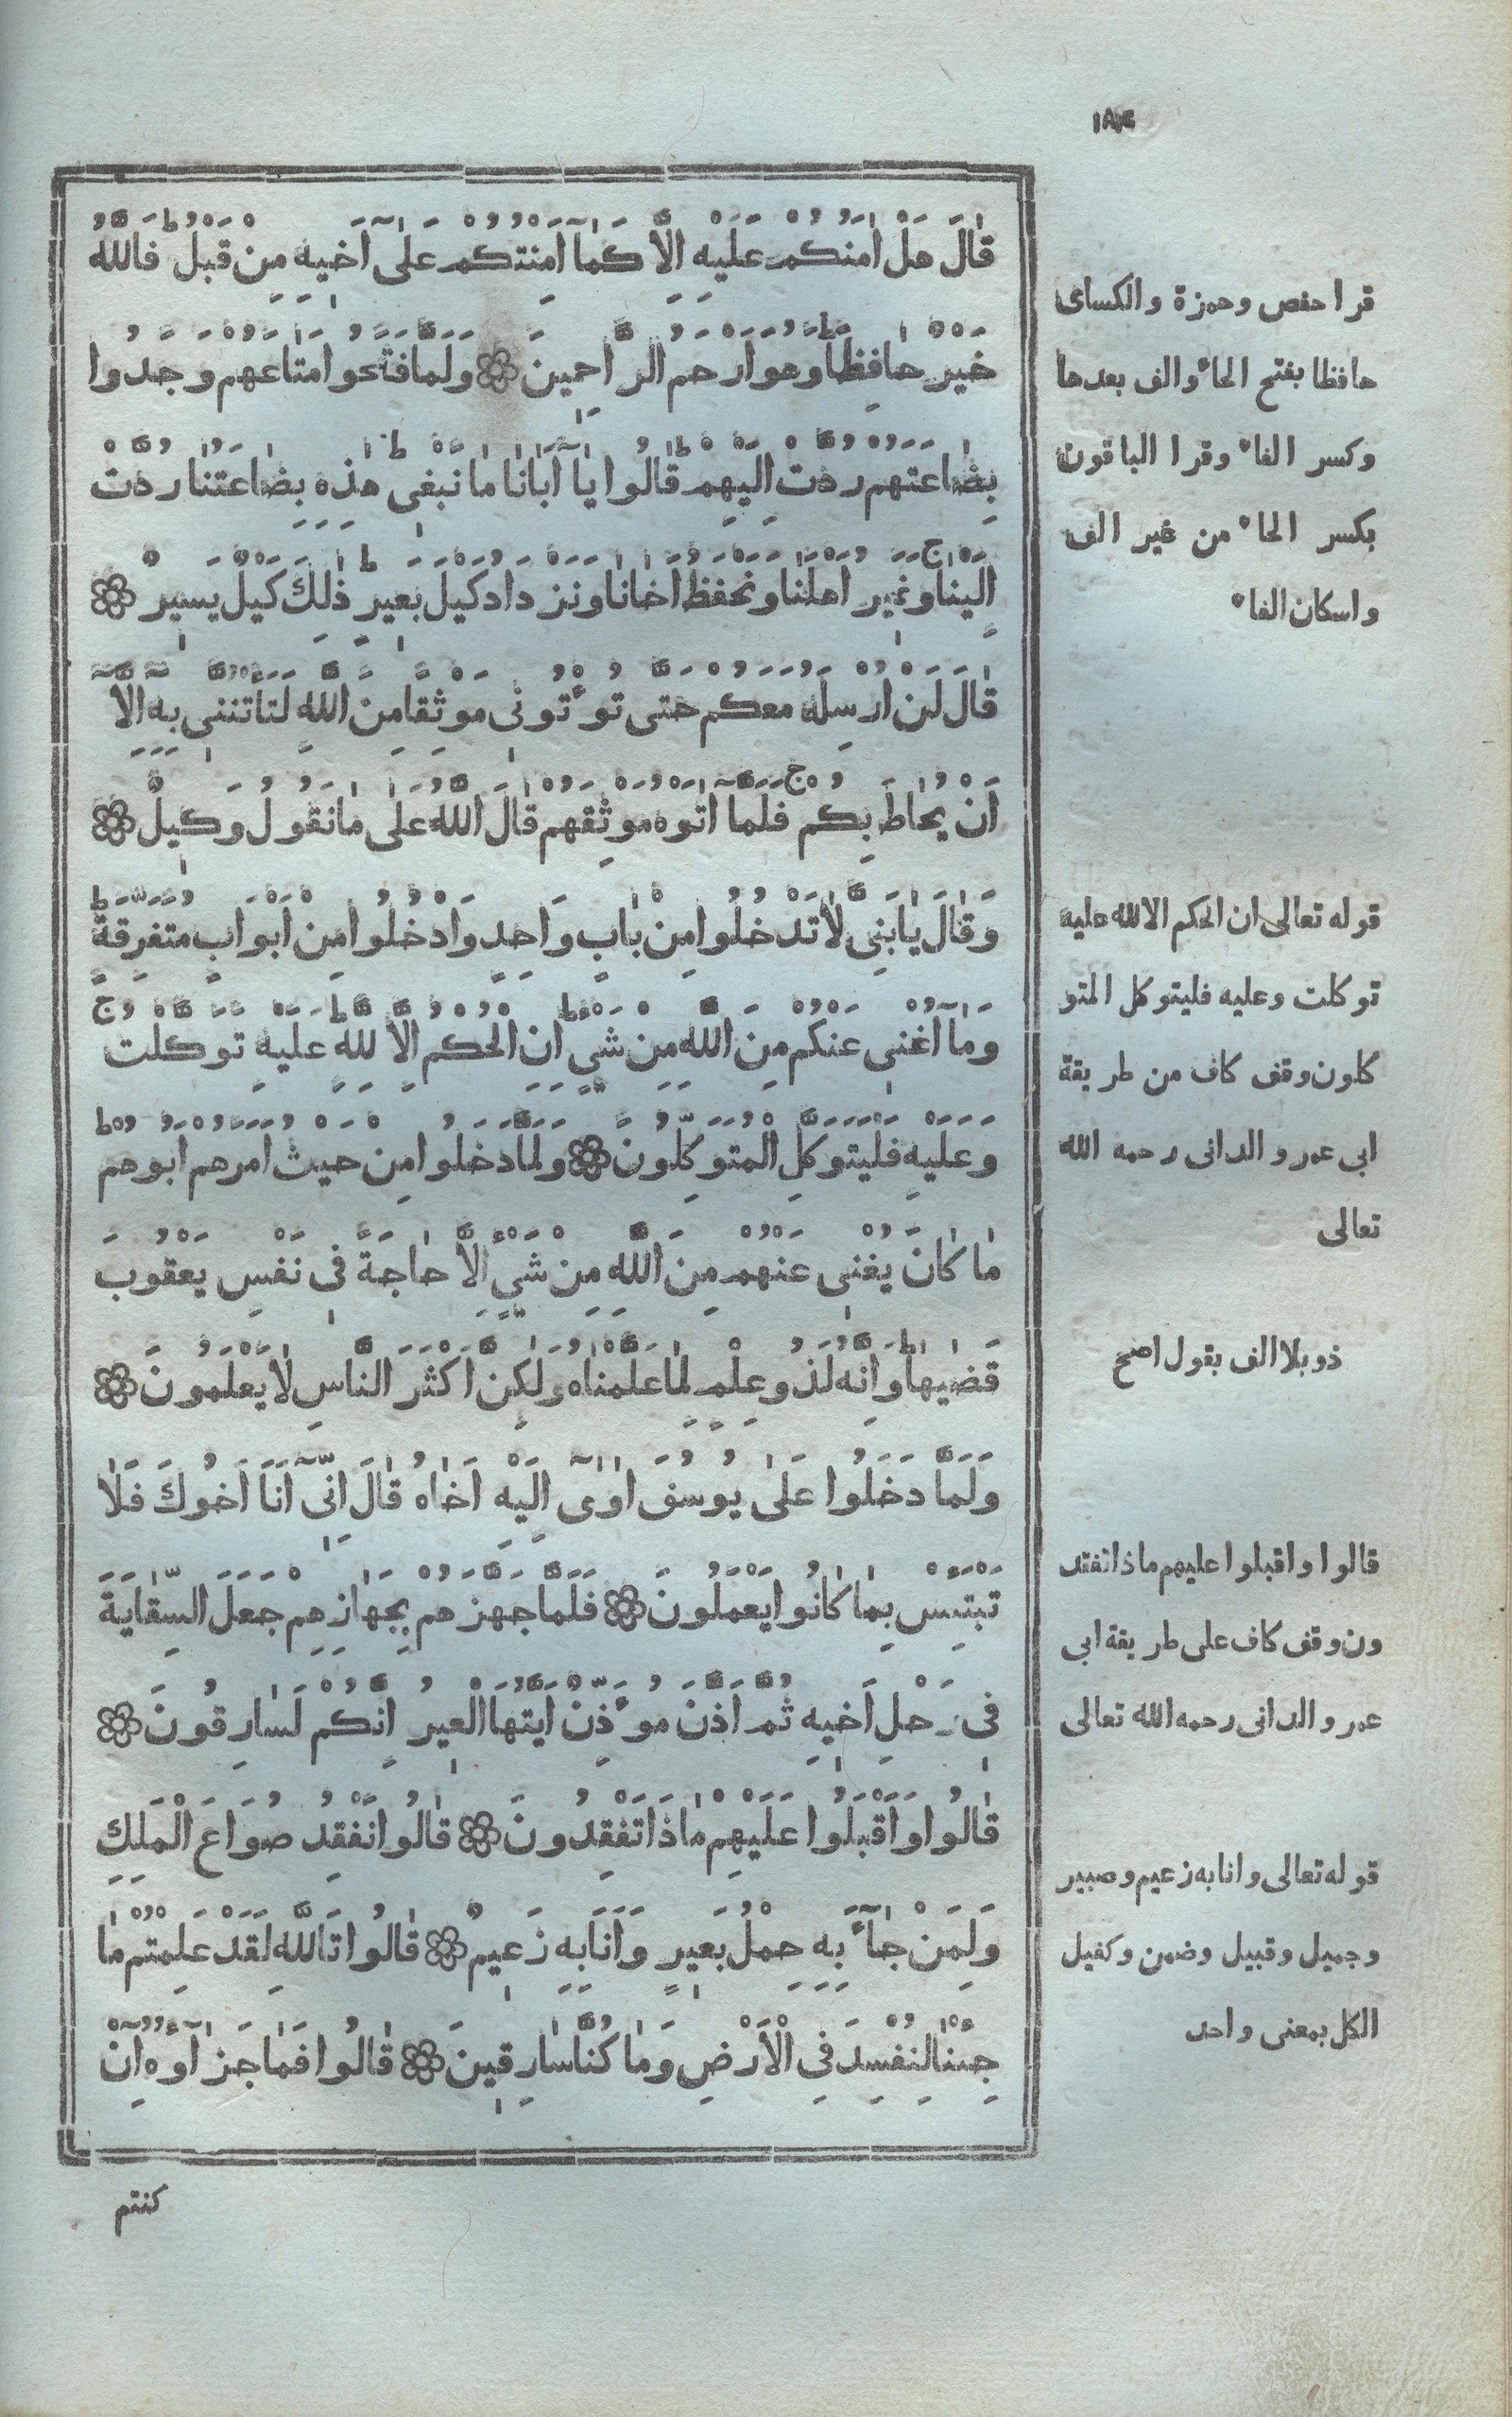 ١٨٤
قَالَ هَلْ اٰمَنُكُمْ عَلَيْهِ اِلَّا كَمَٓا اَمِنْتُكُمْ عَلٰٓى اَخِيهِ مِنْ قَبْلُ ط فَاللّٰهُ
خَيْرٌ حَافِظًا ط وَهُوَ اَرْحَمُ الرَّاحِمِينَ ۞ وَلَمَّا فَتَحُوا مَتَاعَهُمْ وَجَدُوا
بِضَاعَتَهُمْ رُدَّتْ اِلَيْهِمْ ط قَالُوا يَٓا اَبَانَا مَا نَبْغِى ط هٰذِهِ بِضَاعَتُنَا رُدَّتْ
اِلَيْنَا ج وَنَمِيرُ اَهْلَنَا وَنَحْفَظُ اَخَانَا وَنَزْدَادُ كَيْلَ بَعِيرٍ ط ذٰلِكَ كَيْلٌ يَسِيرٌ ۞
قَالَ لَنْ اُرْسِلَهُ مَعَكُمْ حَتّٰى تُؤْتُونِى مَوْثِقًا مِنَ اللّٰهِ لَتَأْتُنَّنِى بِهِ اِلَّٓا
اَنْ يُحَاطَ بِكُمْ ج فَلَمَّٓا اٰتَوْهُ مَوْثِقَهُمْ قَالَ اللّٰهُ عَلٰى مَا نَقُولُ وَكِيلٌ ۞
وَقَالَ يَا بَنِىَّ لَا تَدْخُلُوا مِنْ بَابٍ وَاحِدٍ وَادْخُلُوا مِنْ اَبْوَابٍ مُتَفَرِّقَةٍ ط
وَمَٓا اُغْنِى عَنْكُمْ مِنَ اللّٰهِ مِنْ شَىْءٍ ط اِنِ الْحُكْمُ اِلَّا لِلّٰهِ ط عَلَيْهِ تَوَكَّلْتُ ج
وَعَلَيْهِ فَلْيَتَوَكَّلِ الْمُتَوَكِّلُونَ ۞ وَلَمَّا دَخَلُوا مِنْ حَيْثُ اَمَرَهُمْ اَبُوهُمْ ط
مَا كَانَ يُغْنِى عَنْهُمْ مِنَ اللّٰهِ مِنْ شَىْءٍ اِلَّا حَاجَةً فِى نَفْسِ يَعْقُوبَ
قَضٰيهَا ط وَاِنَّهُ لَذُو عِلْمٍ لِمَا عَلَّمْنَاهُ وَلٰكِنَّ اَكْثَرَ النَّاسِ لَا يَعْلَمُونَ ۞
وَلَمَّا دَخَلُوا عَلٰى يُوسُفَ اٰوٰٓى اِلَيْهِ اَخَاهُ قَالَ اِنِّٓى اَنَا اَخُوكَ فَلَا
تَبْتَئِسْ بِمَا كَانُوا يَعْمَلُونَ ۞ فَلَمَّا جَهَّزَهُمْ بِجَهَازِهِمْ جَعَلَ السِّقَايَةَ
فِى رَحْلِ اَخِيهِ ثُمَّ اَذَّنَ مُؤَذِّنٌ اَيَّتُهَا الْعِيرُ اِنَّكُمْ لَسَارِقُونَ ۞
قَالُوا وَاَقْبَلُوا عَلَيْهِمْ مَاذَا تَفْقِدُونَ ۞ قَالُوا نَفْقِدُ صُوَاعَ الْمَلِكِ
وَلِمَنْ جَٓاءَ بِهِ حِمْلُ بَعِيرٍ وَاَنَا بِهِ زَعِيمٌ ۞ قَالُوا تَاللّٰهِ لَقَدْ عَلِمْتُمْ مَا
جِئْنَا لِنُفْسِدَ فِى الْاَرْضِ وَمَا كُنَّا سَارِقِينَ ۞ قَالُوا فَمَا جَزَٓاؤُهُٓ اِنْ
كنتم
قرا حفص وحمزة والكساى
حافظا بفتح الحاء والف بعدها
وكسر الفاء وقرا الباقون
بكسر الحاء من غير الف
واسكان الفاء
قوله تعالى ان الحكم الا لله عليه
توكلت وعليه فليتوكل المتو
كلون وقف كاف من طريقة
ابى عمرو الدانى رحمه الله
تعالى
ذو بلا الف بقول اصح
قالوا واقبلوا عليهم ماذا تفقد
ون وقف كاف على طريقة ابى
عمرو الدانى رحمه الله تعالى
قوله تعالى وانا به زعيم وصبير
وجميل وقبيل وضمن وكفيل
الكل بمعنى واحد